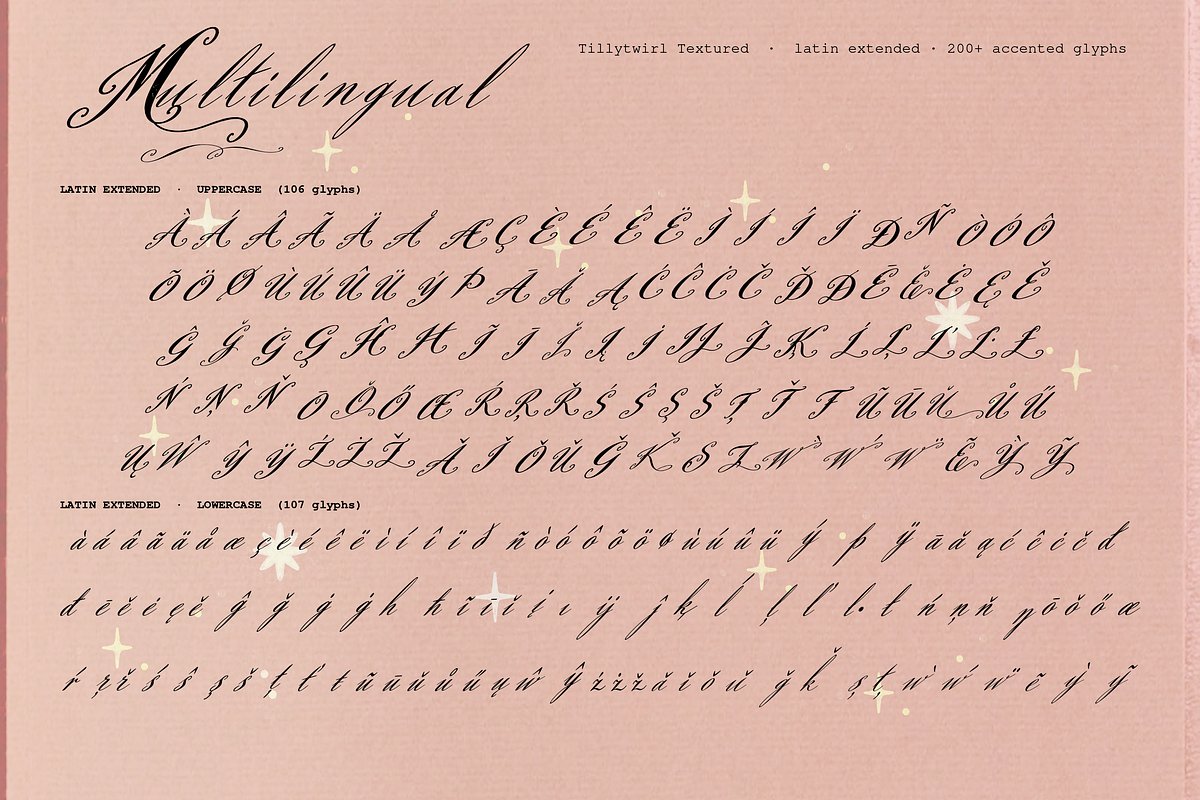 Multilingual
Tillytwirl Textured · latin extended · 200+ accented glyphs
LATIN EXTENDED · UPPERCASE (106 glyphs)
À Á Â Ã Ä Å Æ Ç È É Ê Ë Ì Í Î Ï Ð Ñ Ò Ó Ô
Õ Ö Ø Ù Ú Û Ü Ý Þ Ā Ă Ą Ć Ĉ Ċ Č Ď Đ Ē Ĕ Ė Ę Ě
Ĝ Ğ Ġ Ģ Ĥ Ħ Ĩ Ī Ĭ Į İ IJ Ĵ Ķ Ĺ Ļ Ľ Ŀ Ł
Ń Ņ Ň Ō Ŏ Ő Œ Ŕ Ŗ Ř Ś Ŝ Ş Š Ţ Ť Ŧ Ũ Ū Ŭ Ů Ű
Ų Ŵ Ŷ Ÿ Ź Ż Ž Ǎ Ǐ Ǒ Ǔ Ǧ Ǩ Ș Ț Ẁ Ẃ Ẅ Ẽ Ỳ Ỹ
LATIN EXTENDED · LOWERCASE (107 glyphs)
à á â ã ä å æ ç è é ê ë ì í î ï ð ñ ò ó ô õ ö ø ù ú û ü ý þ ÿ ā ă ą ć ĉ ċ č ď
đ ē ĕ ė ę ě ĝ ğ ġ ģ ĥ ħ ĩ ī ĭ į ı ij ĵ ķ ĺ ļ ľ ŀ ł ń ņ ň ŋ ō ŏ ő œ
ŕ ŗ ř ś ŝ ş š ţ ť ŧ ũ ū ŭ ů ű ų ŵ ŷ ź ż ž ǎ ǐ ǒ ǔ ǧ ǩ ș ț ẁ ẃ ẅ ẽ ỳ ỹ